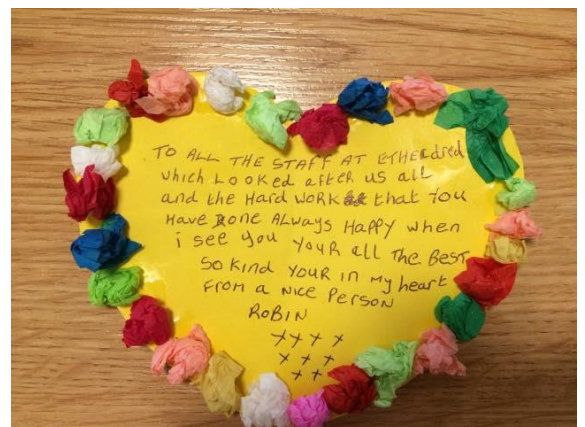 TO ALL THE STAFF AT ETHELDred
which LOOKed after us all
and the Hard WORK that you
Have Done ALways Happy when
i see you YOUR all The Best
SO Kind YOUR in my heart
From a Nice Person
ROBIN
x x x x
x x x
x x